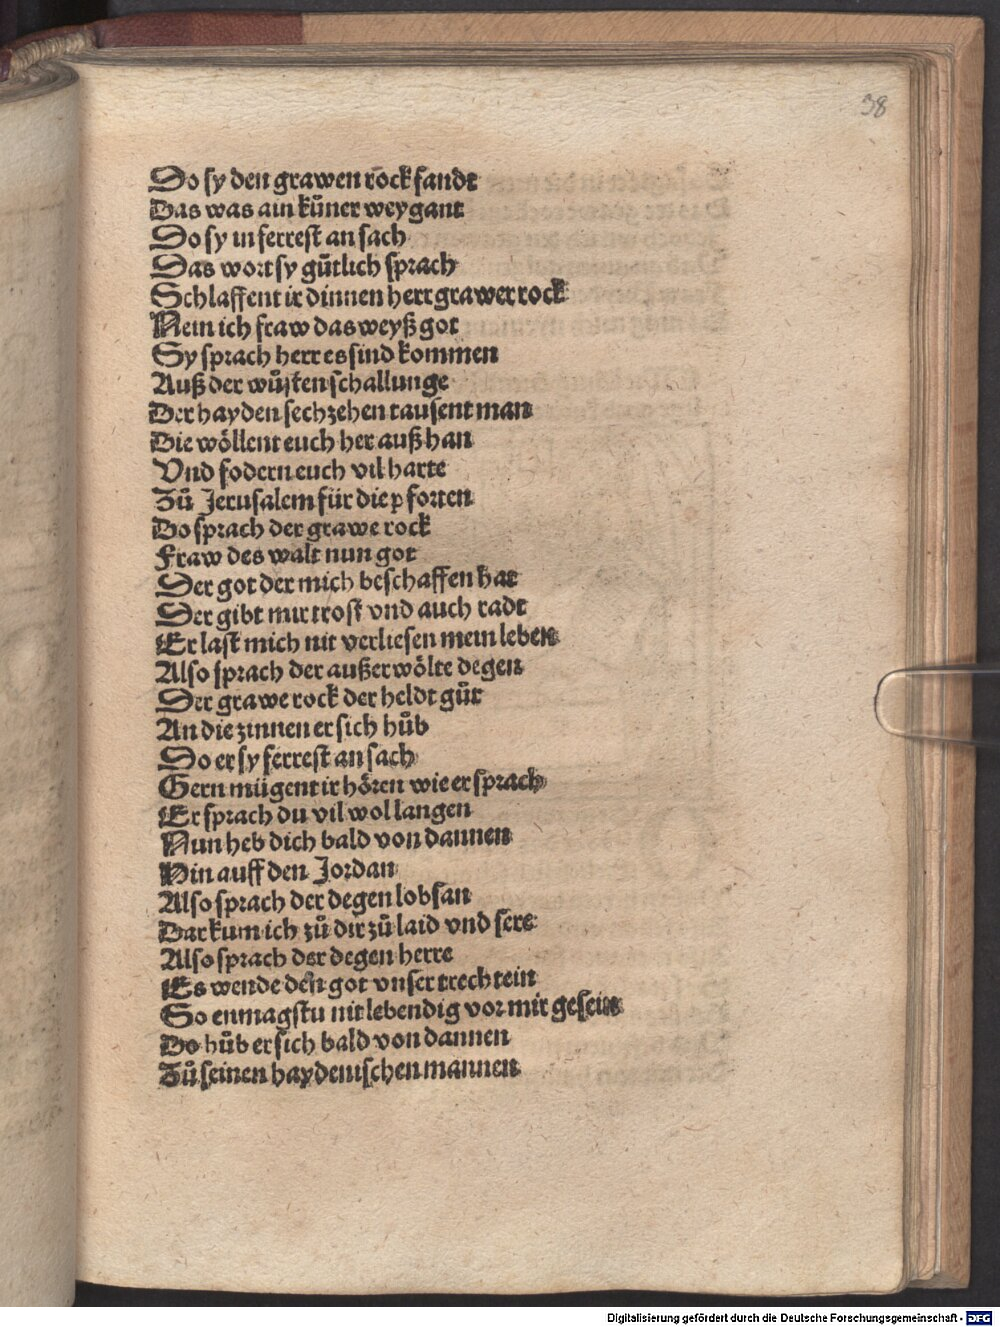 38
Do sy den grawen rock fandt
Das was ain kůner weygant
Do sy in ferrest an sach
Das wort sy gůtlich sprach
Schlaffent ir dinnen herr grawer rock
Nein ich fraw das weyß got
Sy sprach herr es sind kommen
Auß der wůsten schallunge
Der hayden sechzehen tausent man
Die wöllent euch her auß han
Vnd fodern euch vil harte
Zů Jerusalem für die pforten
Do sprach der grawe rock
Fraw des walt nun got
Der got der mich beschaffen hat
Der gibt mir trost vnd auch radt
Er last mich nit verliesen mein leben
Also sprach der außerwölte degen
Der grawe rock der heldt gůt
An die zinnen er sich hůb
Do er sy ferrest an sach
Gern mügent ir hören wie er sprach
Er sprach du vil wol langen
Nun heb dich bald von dannen
Hin auff den Jordan
Also sprach der degen lobsan
Dar kum ich zů dir zů laid vnd sere
Also sprach der degen herre
Es wende den got vnser trechtein
So enmagstu nit lebendig vor mir gesein
Do hůb er sich bald von dannen
Zů seinen haydenischen mannen
Digitalisierung gefördert durch die Deutsche Forschungsgemeinschaft - DFG